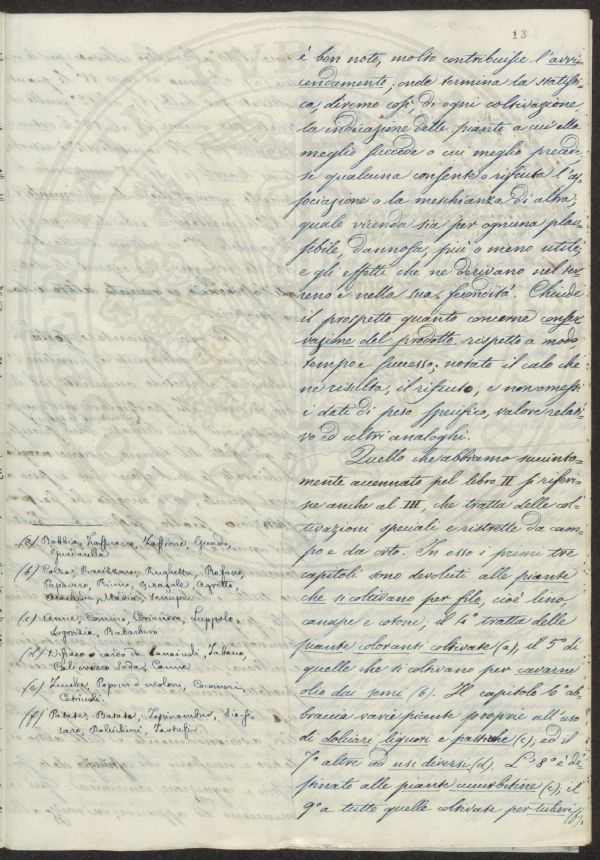 13
è ben noto, molto contribuisce l'avvi-
cendamento; onde termina la statisti-
ca, diremo così, di ogni coltivazione
la indicazione delle piante a cui ella
meglio succede o cui meglio precede,
se qualcuna consente o rifiuta l'as-
sociazione o la meschianza di altra,
quale vicenda sia per ognuna plau-
sibile, dannosa, più o meno utile,
e gli effetti che ne derivano nel ter-
reno e nella sua fecondità. Chiude
il prospetto quanto concerne conser-
vazione del prodotto rispetto a modo
tempo e successo; notato il calo che
ne risulta, il rifiuto, e non omessi
i dati di peso specifico, valore relati-
vo ed altri analoghi.
Quello che abbiamo succinta-
mente accennato pel libro II si riferi-
sce anche al III, che tratta delle col-
tivazioni speciali e ristrette da cam-
po e da orto. In esso i primi tre
capitoli sono devoluti alle piante
che si coltivano per filo, cioè lino,
canape e cotone; il 4° tratta delle
piante coloranti coltivate (a), il 5° di
quelle che si coltivano per cavarne
olio dai semi (b). Il capitolo 6° ab-
braccia varie piante proprie all'uso
di dolciare, liquori e pasticche (c), ed il
7° altre ad usi diversi (d). L'8° è de-
stinato alle piante cucurbitine (e); il
9° a tutte quelle coltivate per tuberi (f),
(a) Robbia, Zafferano, Zaffrone, Guado,
Guadarella
(b) Colza, Ravizzone, Rughetta, Rafano,
Papavero, Ricino, Girasole, Agretto,
Arachide, Madia, Senape
(c) Anice, Comino, Coriandro, Luppolo,
Logorizia, Rabarbaro
(d) Dissaco o cardo da lanaiuoli, Tabacco,
Soda, Canne
(e) Zucche, Poponi o meloni, Cocomeri,
Cetriuoli
(f) Patate, Batate, Topinambur,
Tartufi